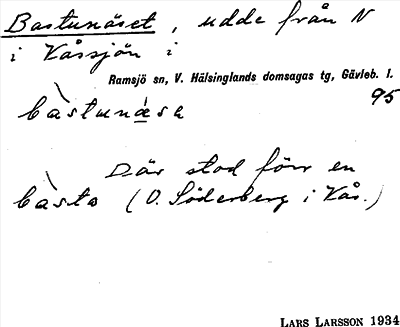 Bastunäset, udde från N
i Kåssjön i
Ramsjö sn, V. Hälsinglands domsagas tg, Gävleb. l.
95
bàstunæse
Där stod förr en
bàsto (O. Söderberg i Kås.)
LARS LARSSON 1934